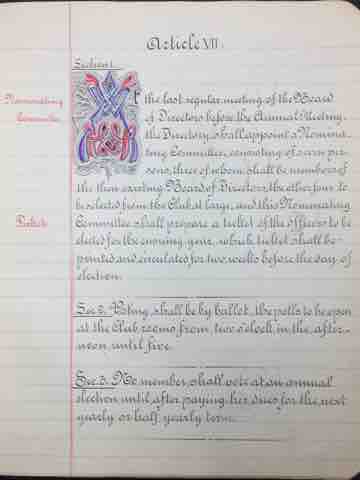 Article VII.
Section 1.
Nominating
Committee.
At the last regular meeting of the Board
of Directors before the Annual Meeting,
the Directory, shall appoint a Nomina-
ting Committee, consisting of seven per-
sons, three of whom shall be members of
the then existing Board of Directors, the other four to
be selected from the Club at large, and this Nominating
Ticket.
Committee shall prepare a ticket of the officers to be
elected for the ensuing year, which ticket shall be
printed and circulated for two weeks before the day of
election.
Sec. 2. Voting shall be by ballot, the polls to be open
at the Club rooms from two o'clock in the after-
noon until five.
Sec. 3. No member shall vote at an annual
election until after paying her dues for the next
yearly or half yearly term.